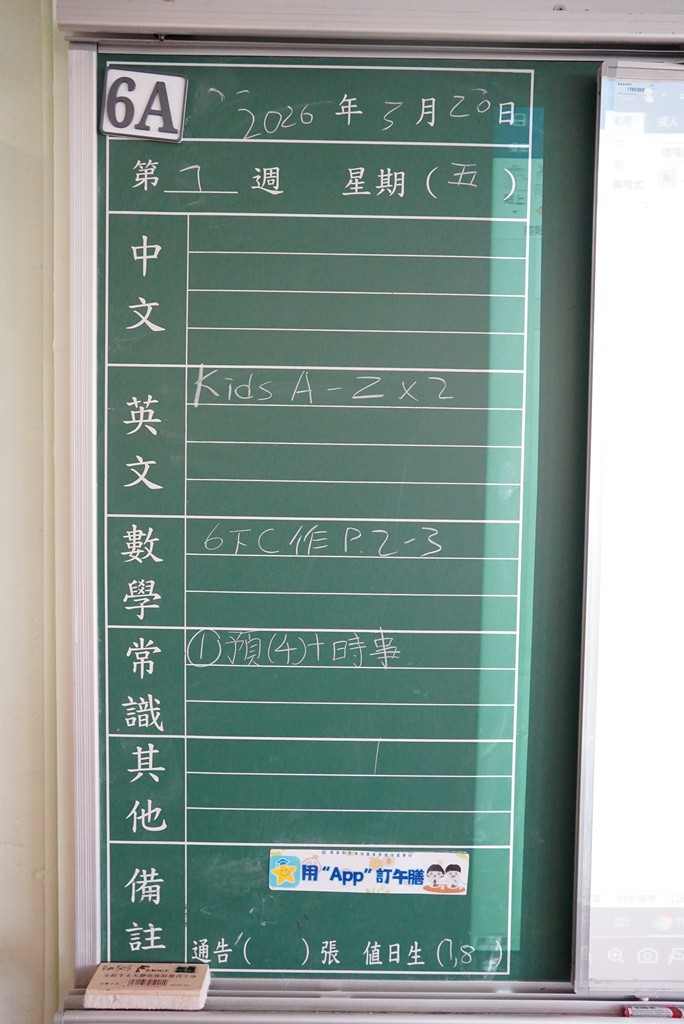 6A
2026 年 3 月 20 日
第 7 週 星期 (五)
中文
英文
Kids A - Z x 2
數學
6下C 作 P.2-3
常識
①預(4)+時事
其他
備註
用 “App” 訂午膳
通告 ( ) 張 值日生 (7,8 )